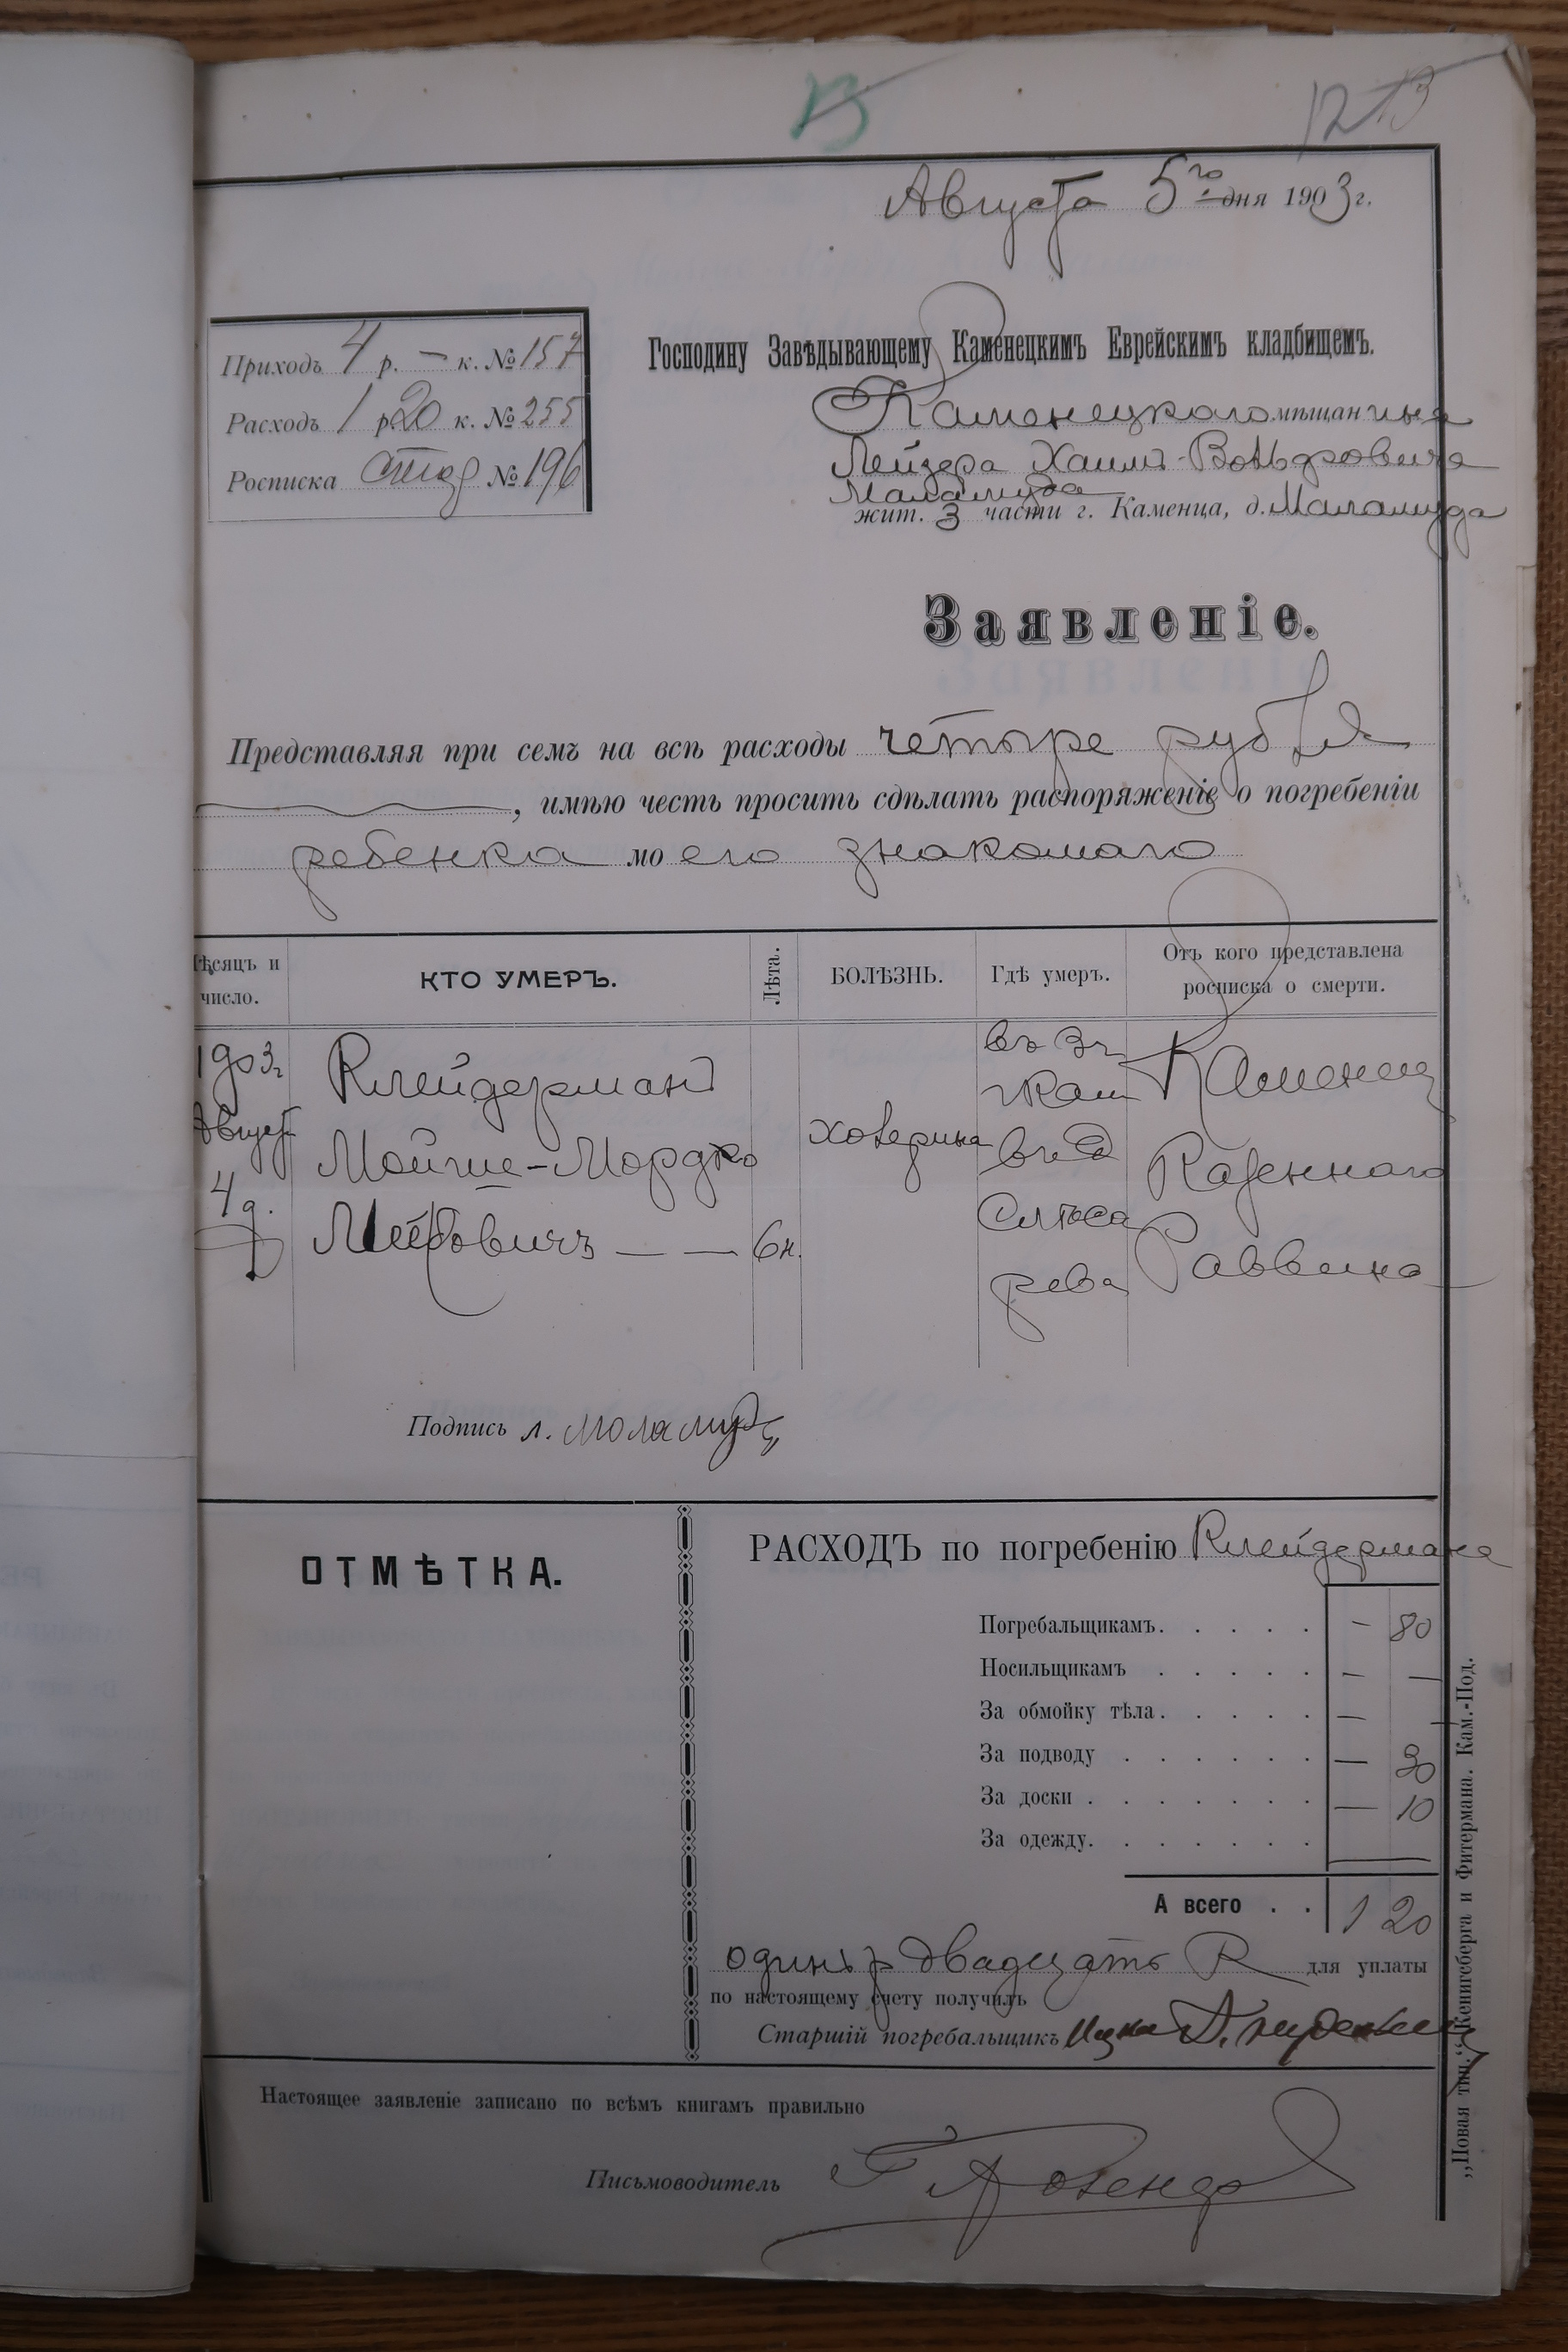 13
12 13
Августа 5го дня 1903 г.
Приходъ 4 р. — к. № 157
Расходъ 1 р. 20 к. № 255
Росписка № 196
Господину Завѣдывающему Каменецкимъ Еврейскимъ кладбищемъ.
Каменецкого мѣщанина
Лейзера Хаимъ-Вольфовича
Маламуда
жит. 3 части г. Каменца, д. Маламуда
Заявленіе.
Представляя при семъ на всѣ расходы четыре рубля
, имѣю честь просить сдѣлать распоряженіе о погребеніи
ребенка моего знакомаго
Мѣсяцъ и число.
КТО УМЕРЪ.
Лѣта.
БОЛѢЗНЬ.
Гдѣ умеръ.
Отъ кого представлена росписка о смерти.
1903г
Августа
4 д.
Клейдерманъ
Мойше-Мордко
Лейбовичъ — —
6 н.
холерина
въ 3 ч
г Кам
въ д
Слюса
рева
Каменец
Казеннаго
Раввина
Подпись Л. Моламуд
ОТМѢТКА.
РАСХОДЪ по погребенію Клейдермана
Погребальщикамъ. . . . . — 80
Носильщикамъ . . . . . — —
За обмойку тѣла. . . . . — —
За подводу . . . . . . — 30
За доски . . . . . . . — 10
За одежду. . . . . . .
А всего . . 1 20
одинъ р двадцать К для уплаты
по настоящему счету получилъ
Старшій погребальщикъ Ицко
Настоящее заявленіе записано по всѣмъ книгамъ правильно
Письмоводитель
„Новая тип.“ Кенигсберга и Фитермана. Кам.-Под.